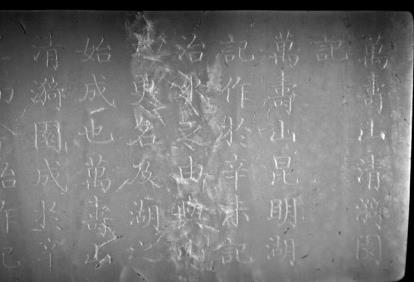 萬壽山清漪園
記
萬壽山昆明湖
記作於辛未記
治水之由與
之更名及湖之
始成也萬壽山
清漪園成於辛